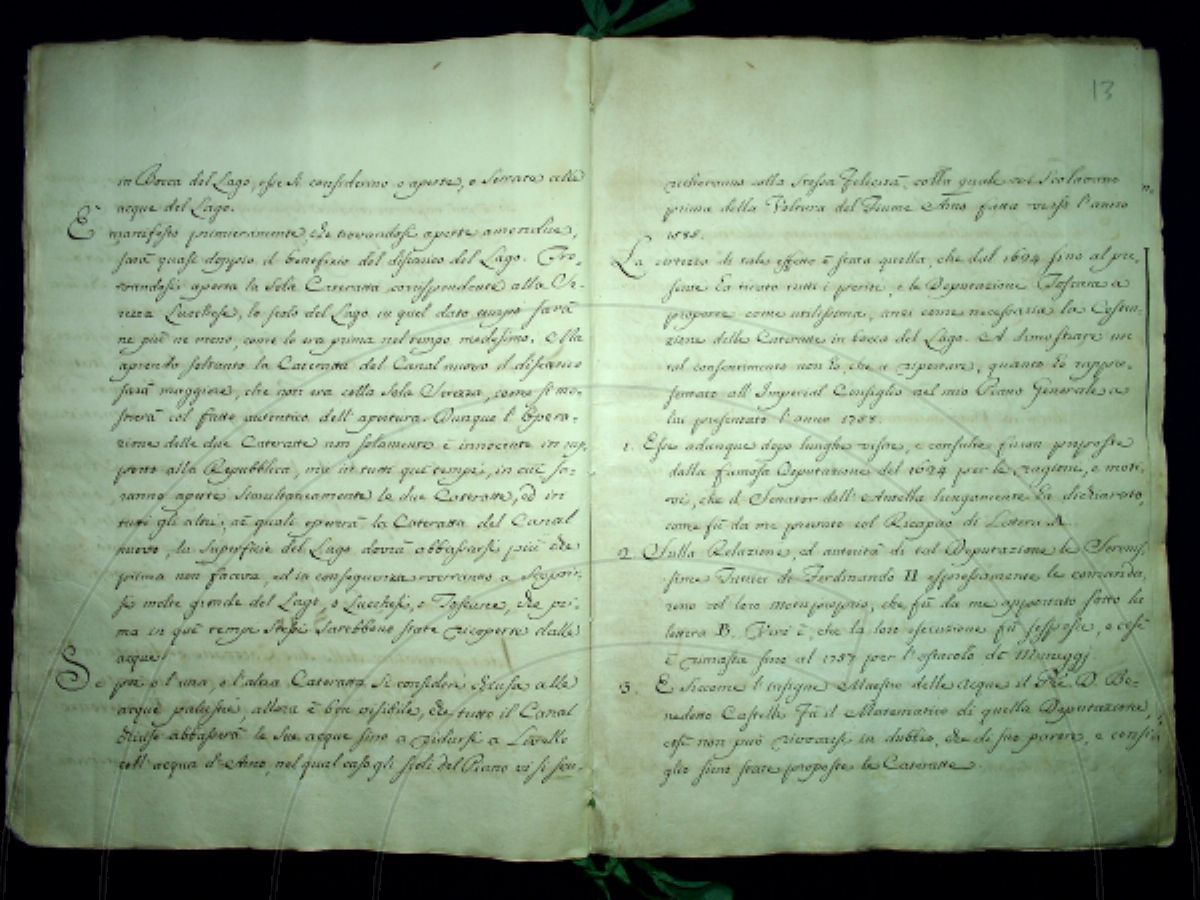 in Bocca del Lago, esse si considerino o aperte, o serrate alle
acque del Lago.
E' manifesto primieramente, che trovandosi aperte amendue,
sarà quasi doppio il benefizio del disfanco del Lago. Tro-
vandosi aperta la sola Cateratta corrispondente alla Se-
rezza Lucchese, lo scolo del Lago in quel dato tempo sarà
ne più ne meno, come lo era prima nel tempo medesimo. Alla
aprendo soltanto la Cateratta del Canal nuovo il disfanco
sarà maggiore, che non era colla sola Serezza, come si mo-
strerà col fatto autentico dell'apertura. Dunque l'Opera-
zione delle due Cateratte non solamente è innocente in rap-
porto alla Repubblica, ma in tutti que' tempi, in cui sa-
ranno aperte simultaneamente le due Cateratte, ed in
tutti gli altri, ne' quali opererà la Cateratta del Canal
nuovo, la superficie del Lago dovrà abbassarsi più che
prima non faceva, ed in conseguenza verranno a scoprir-
si molte gronde del Lago, o Lucchesi, o Toscane, che pri-
ma in que' tempi stessi sarebbono state ricoperte dalle
acque.
Se poi o l'una, o l'altra Cateratta si consideri chiusa alle
acque palustri, allora è ben visibile, che tutto il Canal
chiuso abbasserà le sue acque sino a ridursi a Livello
coll'acqua d'Arno, nel qual caso gli scoli del Piano vi si sca-
13
richeranno colla stessa felicità, colla quale vi si scolavano
prima della Voltura del Fiume Arno fatta verso l'anno
1588.
La certezza di tale effetto è stata quella, che dal 1624 sino al pre-
sente ha tirato tutti i periti, e le Deputazione Toscana a
proporre come utilissima, anzi come necessaria la Costru-
zione delle Cateratte in bocca del Lago. A dimostrare un
tal consentimento non ho che a ripetere, quanto ho rappre-
sentato all'Imperial Consiglio nel mio Piano Generale a
lui presentato l'anno 1758.
1. Esse adunque dopo lunghe visite, e consulte furon proposte
dalla famosa Deputazione del 1624 per le ragione, e moti-
vi, che il Senator dell'Antella lungamente ha dichiarato,
come fù da me provato col Ricapito di Lettera A.
2. Sulla Relazione, ed autorità di tal Deputazione le Serenis-
sime Tutrici di Ferdinando II espressamente le comanda-
rono col loro motuproprio, che fù da me apportato sotto la
lettera B. Vero è, che la loro esecuzione fù sospesa, e così
è rimasta sino al 1757 per l'ostacolo de' Maneggj
3. E siccome l'insigne Maestro delle acque il Pre. D. Be-
nedetto Castelli fù il Matematico di quella Deputazione,
così non può rivocarsi in dubbio, che di suo parere, e consi-
glio sieno state proposte le Cateratte.